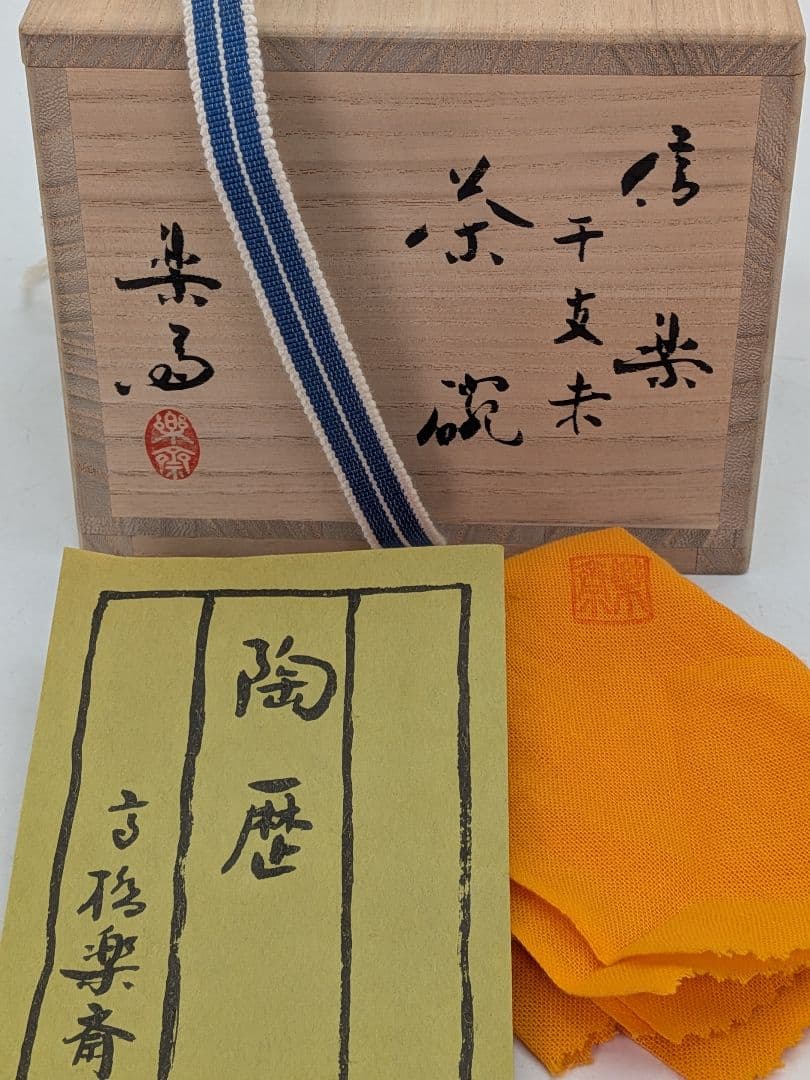 信楽
干支未
茶碗
楽斎
樂齋
陶歴
高橋楽斎
樂齋